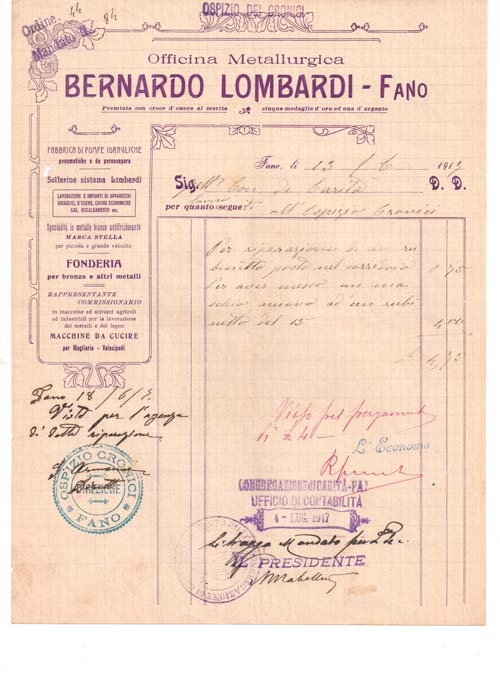 OSPIZIO DEI CRONICI
Ordine. 44
Mandato 84
Officina Metallurgica
BERNARDO LOMBARDI - FANO
Premiata con croce d'onore al merito cinque medaglie d'oro ed una d'argento
FABBRICA DI POMPE IDRAULICHE
pneumatiche e da pozzonopera
Solforine sistema Lombardi
LAVORAZIONE E IMPIANTI DI APPARECCHI
IDRAULICI, D'IGIENE, CUCINE ECONOMICHE
GAS, RISCALDAMENTO ecc.
Specialità in metallo bianco antifrizionante
MARCA STELLA
per piccola e grande velocità
FONDERIA
per bronzo e altri metalli
RAPPRESENTANTE
COMMISSIONARIO
in macchine ed attrezzi agricoli
ed industriali per la lavorazione
dei metalli e del legno
MACCHINE DA CUCIRE
per Maglieria - Velocipedi
Fano, li 13 / 6 191
Sig. Con. di Carità D. D.
per quanto segue: lavoro all'Ospizio Cronici
Per riparazione di un ru
binetto posto nel corridoio 0,75
Per aver messo un ma
schio nuovo ad un rubi
netto del 15 4,00
£ 4,75
Fano 18/6/
Visto per l'
di detta riparazione
OSPIZIO CRONICI
FANO
Visto pel pagamento
L'Economo
CONGREGAZIONE DI CARITÀ - FA
UFFICIO DI CONTABILITÀ
4 - LUG. 1917
Si tragga Mandato per
IL PRESIDENTE